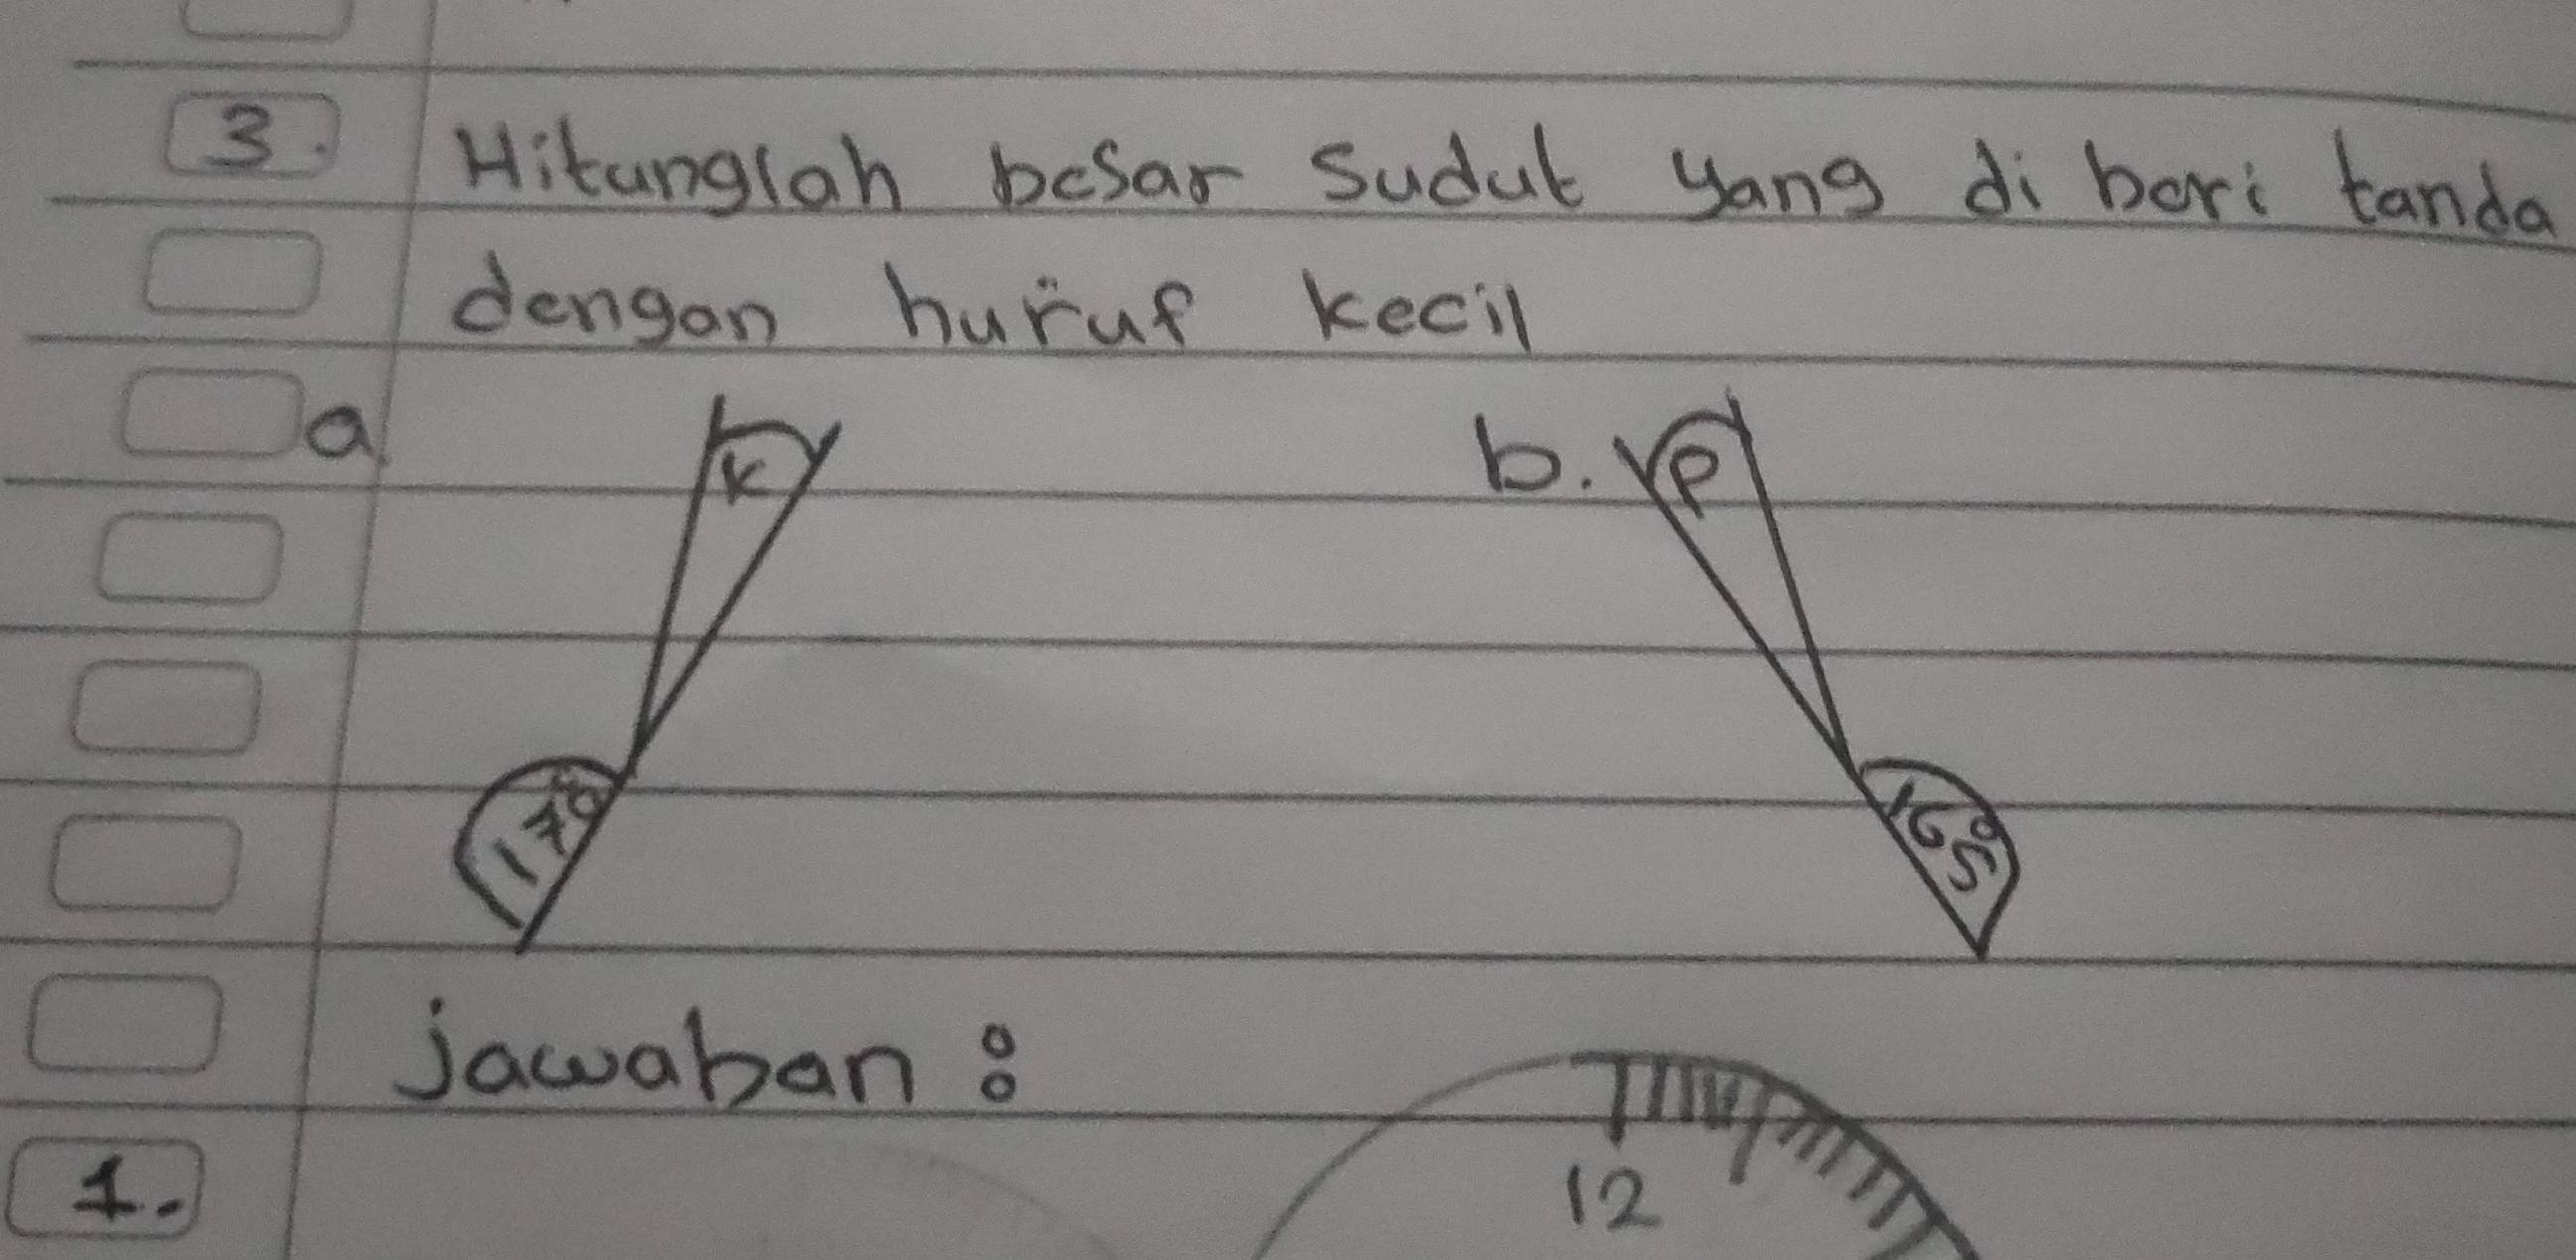 3. Hitunglah besar sudut yang di beri tanda
dengan huruf kecil
a. k
b. p
170°
165°
jawaban :
1.
12